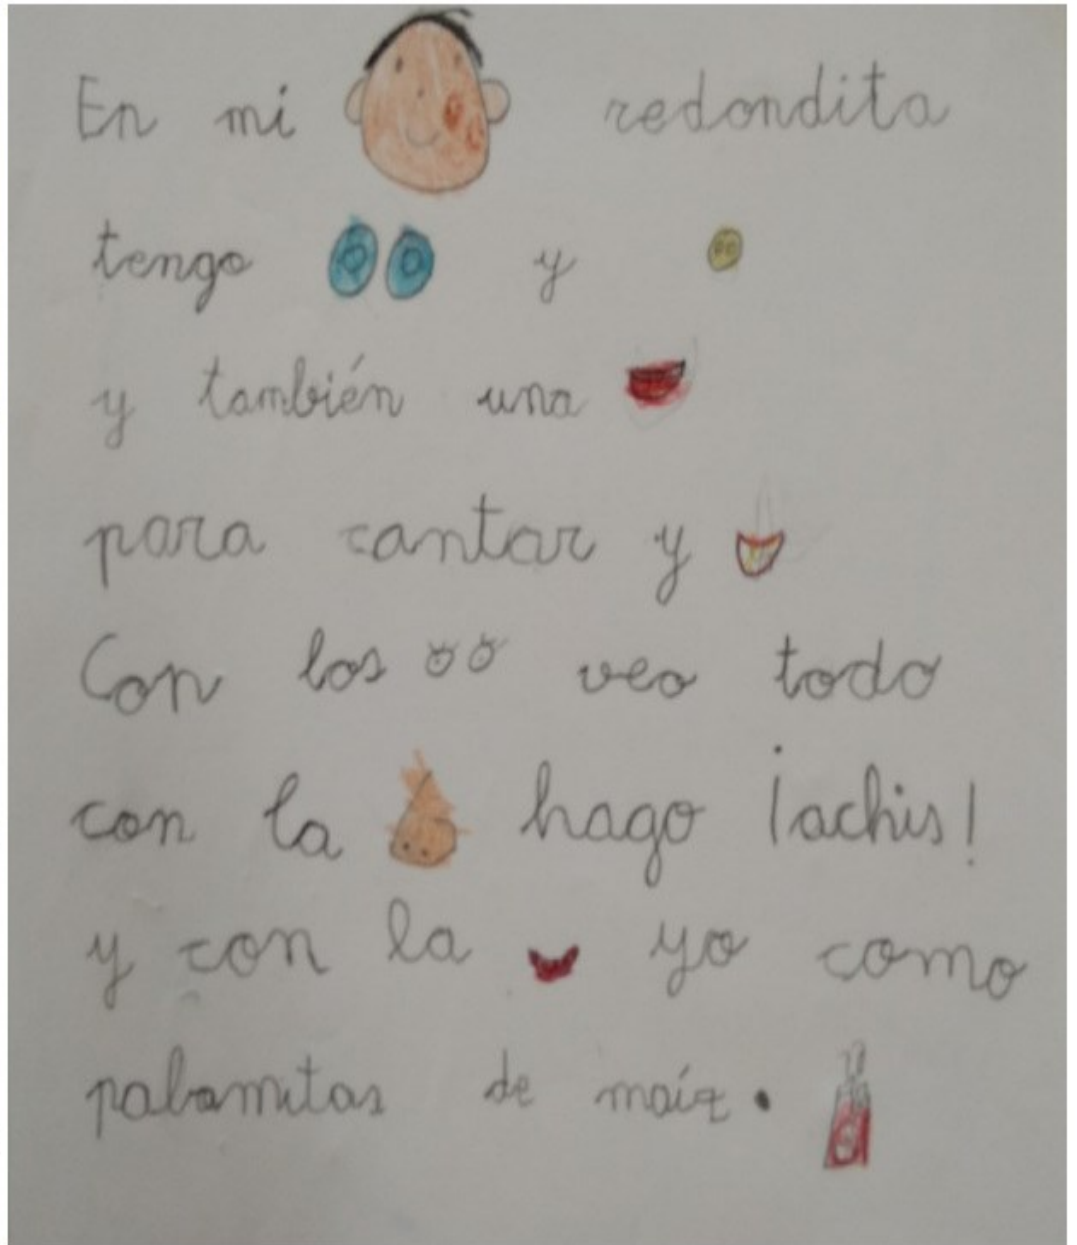 En mi redondita
tengo y
y también una
para cantar y
Con los veo todo
con la hago ¡achis!
y con la yo como
palomitas de maíz.